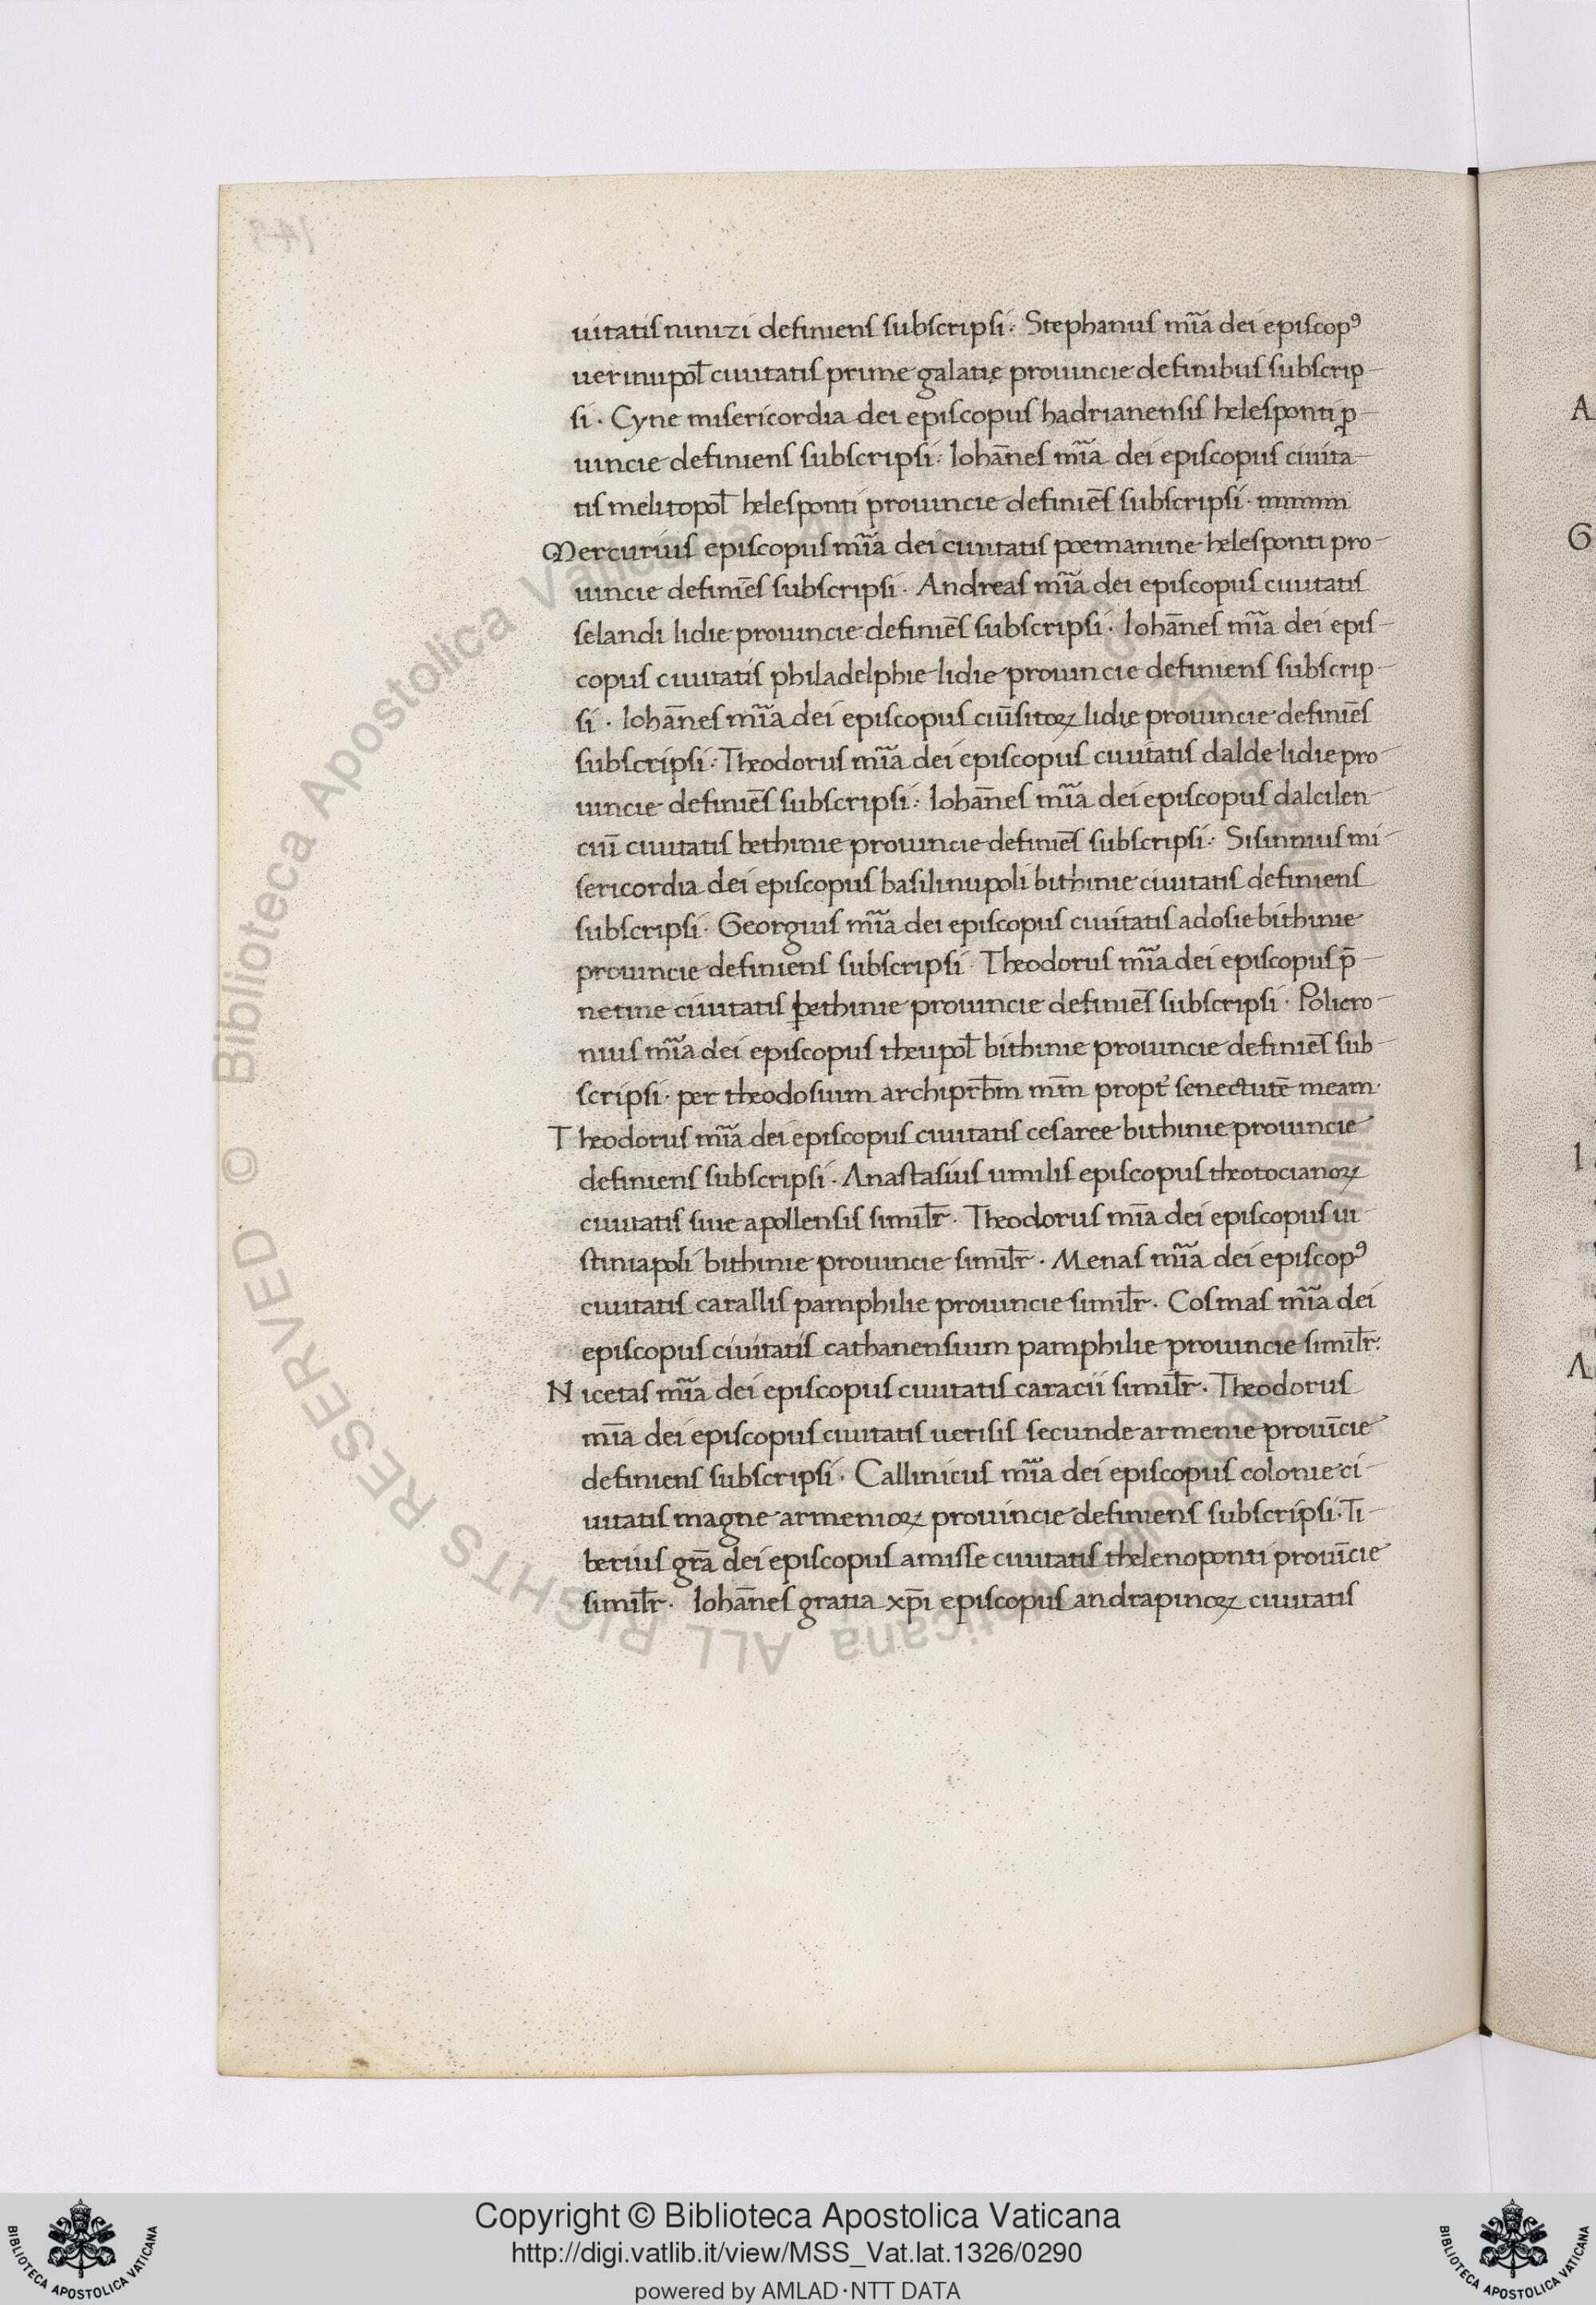 uitatis ninizi definiens subscripsi. Stephanus mĩa dei episcopꝰ
uerinupol̄ ciuitatis prime galatię prouincie definibus subscrip-
si. Cyne misericordia dei episcopus hadrianensis helesponti ꝓ-
uincie definiens subscripsi. Iohānes mĩa dei episcopus ciuita-
tis melitopol̄ helesponti prouincie definiēs subscripsi.
Mercurius episcopus mĩa dei ciuitatis poemanine helesponti pro-
uincie definiēs subscripsi. Andreas mĩa dei episcopus ciuitatis
selandi lidie prouincie definiēs subscripsi. Iohānes mĩa dei epis-
copus ciuitatis philadelphie lidie prouincie definiens subscrip-
si. Iohānes mĩa dei episcopus ciūsitoꝝ lidie prouincie definiēs
subscripsi. Theodorus mĩa dei episcopus ciuitatis dalde lidie pro-
uincie definiēs subscripsi. Iohānes mĩa dei episcopus dalcilen-
ciū ciuitatis bethinie prouincie definiēs subscripsi. Sisinnius mi-
sericordia dei episcopus basilinupoli bithinie ciuitatis definiens
subscripsi. Georgius mĩa dei episcopus ciuitatis adosie bithinie
prouincie definiens subscripsi. Theodorus mĩa dei episcopus p̄-
netine ciuitatis bethinie prouincie definiēs subscripsi. Policro-
nius mĩa dei episcopus theupol̄ bithinie prouincie definiēs sub-
scripsi. per theodosium archipr̄bm mm̄ propt̉ senectutē meam.
Theodorus mĩa dei episcopus ciuitatis cesaree bithinie prouincie
definiens subscripsi. Anastasius umilis episcopus theotocianoꝝ
ciuitatis siue apollensis simil̄r. Theodorus mīa dei episcopus iu
stiniapoli bithinie prouincie simil̄r. Menas mĩa dei episcopꝰ
ciuitatis carallis pamphilie prouincie simil̄r. Cosmas mĩa dei
episcopus ciuitatis cathanensium pamphilie prouincie simil̄r.
Nicetas mĩa dei episcopus ciuitatis caracii simil̄r. Theodorus
mīa dei episcopus ciuitatis uerisis secunde armenie prouīcie
definiens subscripsi. Callinicus mĩa dei episcopus colonie ci-
uitatis magne armenioꝝ prouincie definiens subscripsi. Ti-
berius grā dei episcopus amisse ciuitatis thelenoponti prouīcie
simil̄r. Iohānes gratia xp̄i episcopus andrapinoꝝ ciuitatis
A
G
I
A
© Biblioteca Apostolica Vaticana ALL RIGHTS RESERVED
Copyright © Biblioteca Apostolica Vaticana
http://digi.vatlib.it/view/MSS_Vat.lat.1326/0290
powered by AMLAD·NTT DATA
BIBLIOTECA APOSTOLICA VATICANA
BIBLIOTECA APOSTOLICA VATICANA